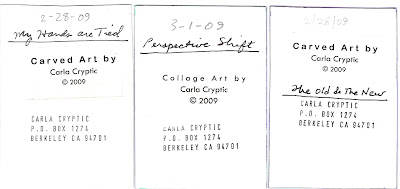 2-28-09
My Hands are Tied
Carved Art by
Carla Cryptic
© 2009
CARLA CRYPTIC
P.O. BOX 1274
BERKELEY CA 94701
3-1-09
Perspective Shift
Collage Art by
Carla Cryptic
© 2009
CARLA CRYPTIC
P.O. BOX 1274
BERKELEY CA 94701
2/28/09
Carved Art by
Carla Cryptic
© 2009
The Old & The New
CARLA CRYPTIC
P.O. BOX 1274
BERKELEY CA 94701